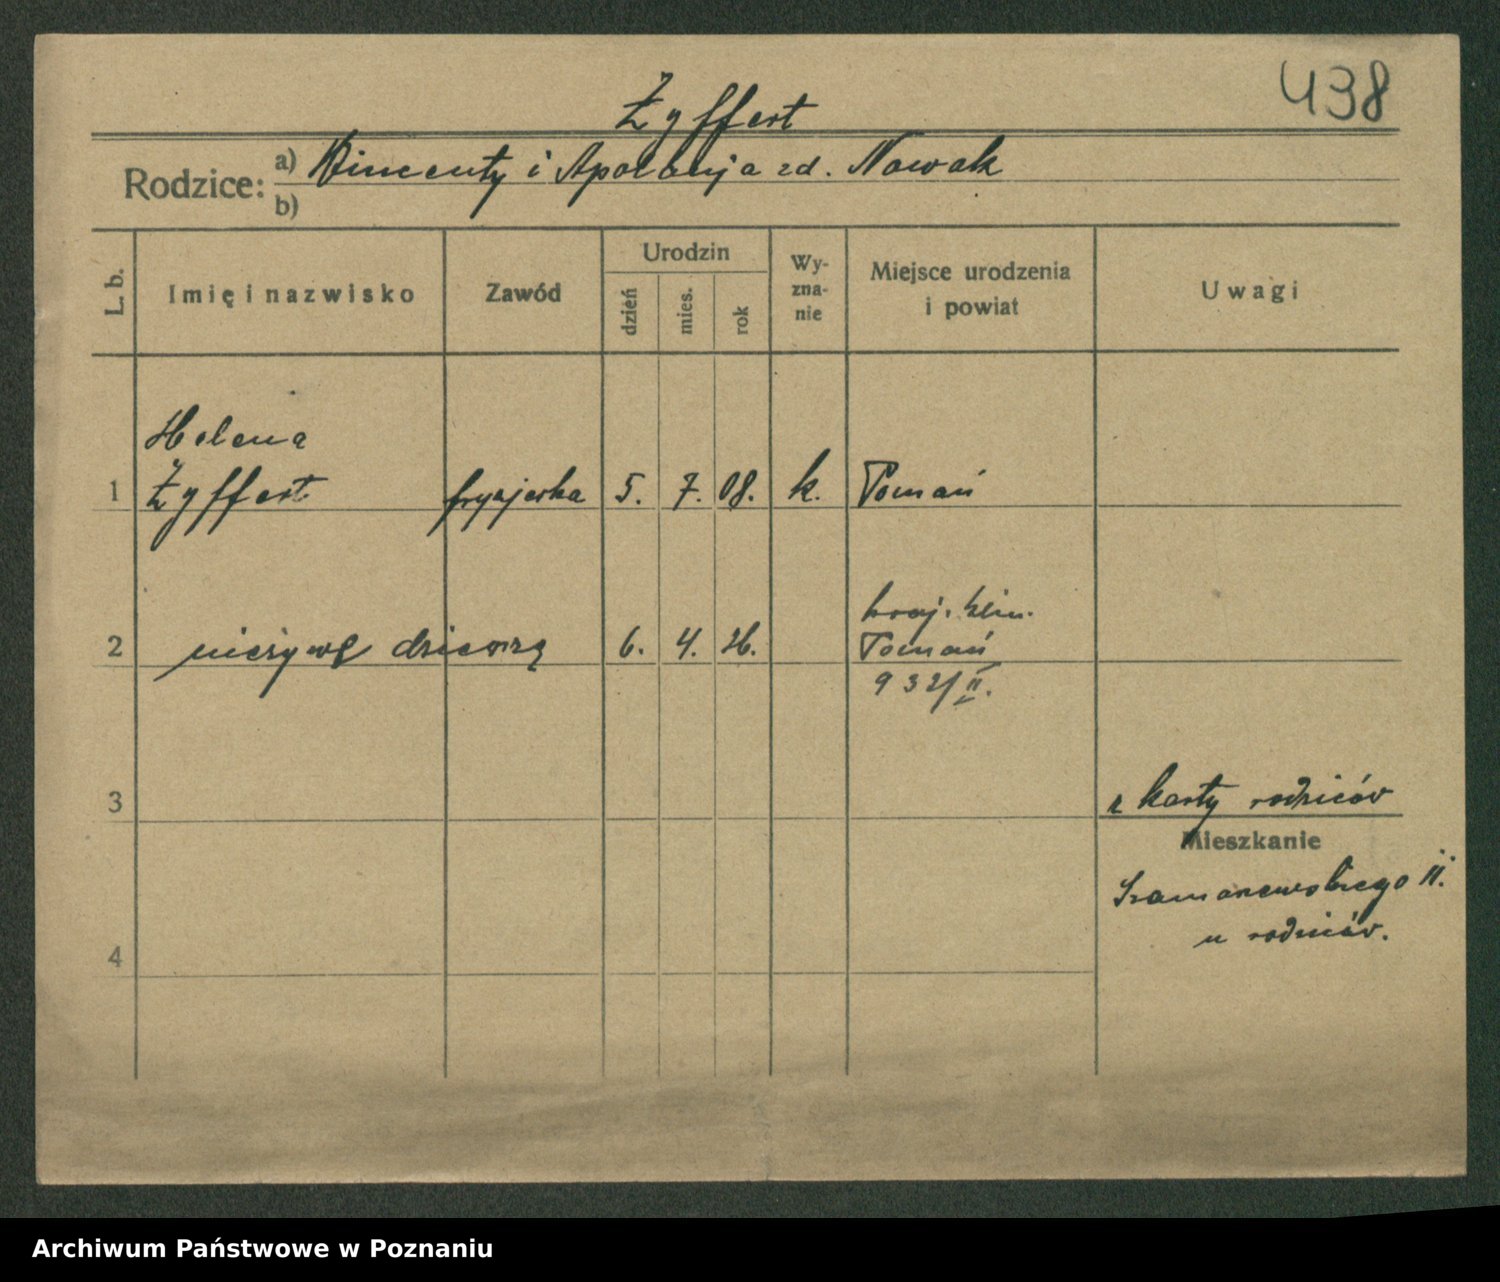 438
Żyffert
Rodzice: a) Wincenty i Apolonja zd. Nowak
b)
L. b.
Imię i nazwisko
Zawód
Urodzin
dzień
mies.
rok
Wy-
zna-
nie
Miejsce urodzenia
i powiat
Uwagi
Helena
1 Żyffert fryzjerka 5. 7. 08. k. Poznań
kraj. klin.
2 nieżywe dziecię 6. 4. Poznań
932/II.
3 z karty rodziców
Mieszkanie
11.
u rodziców.
4
Archiwum Państwowe w Poznaniu